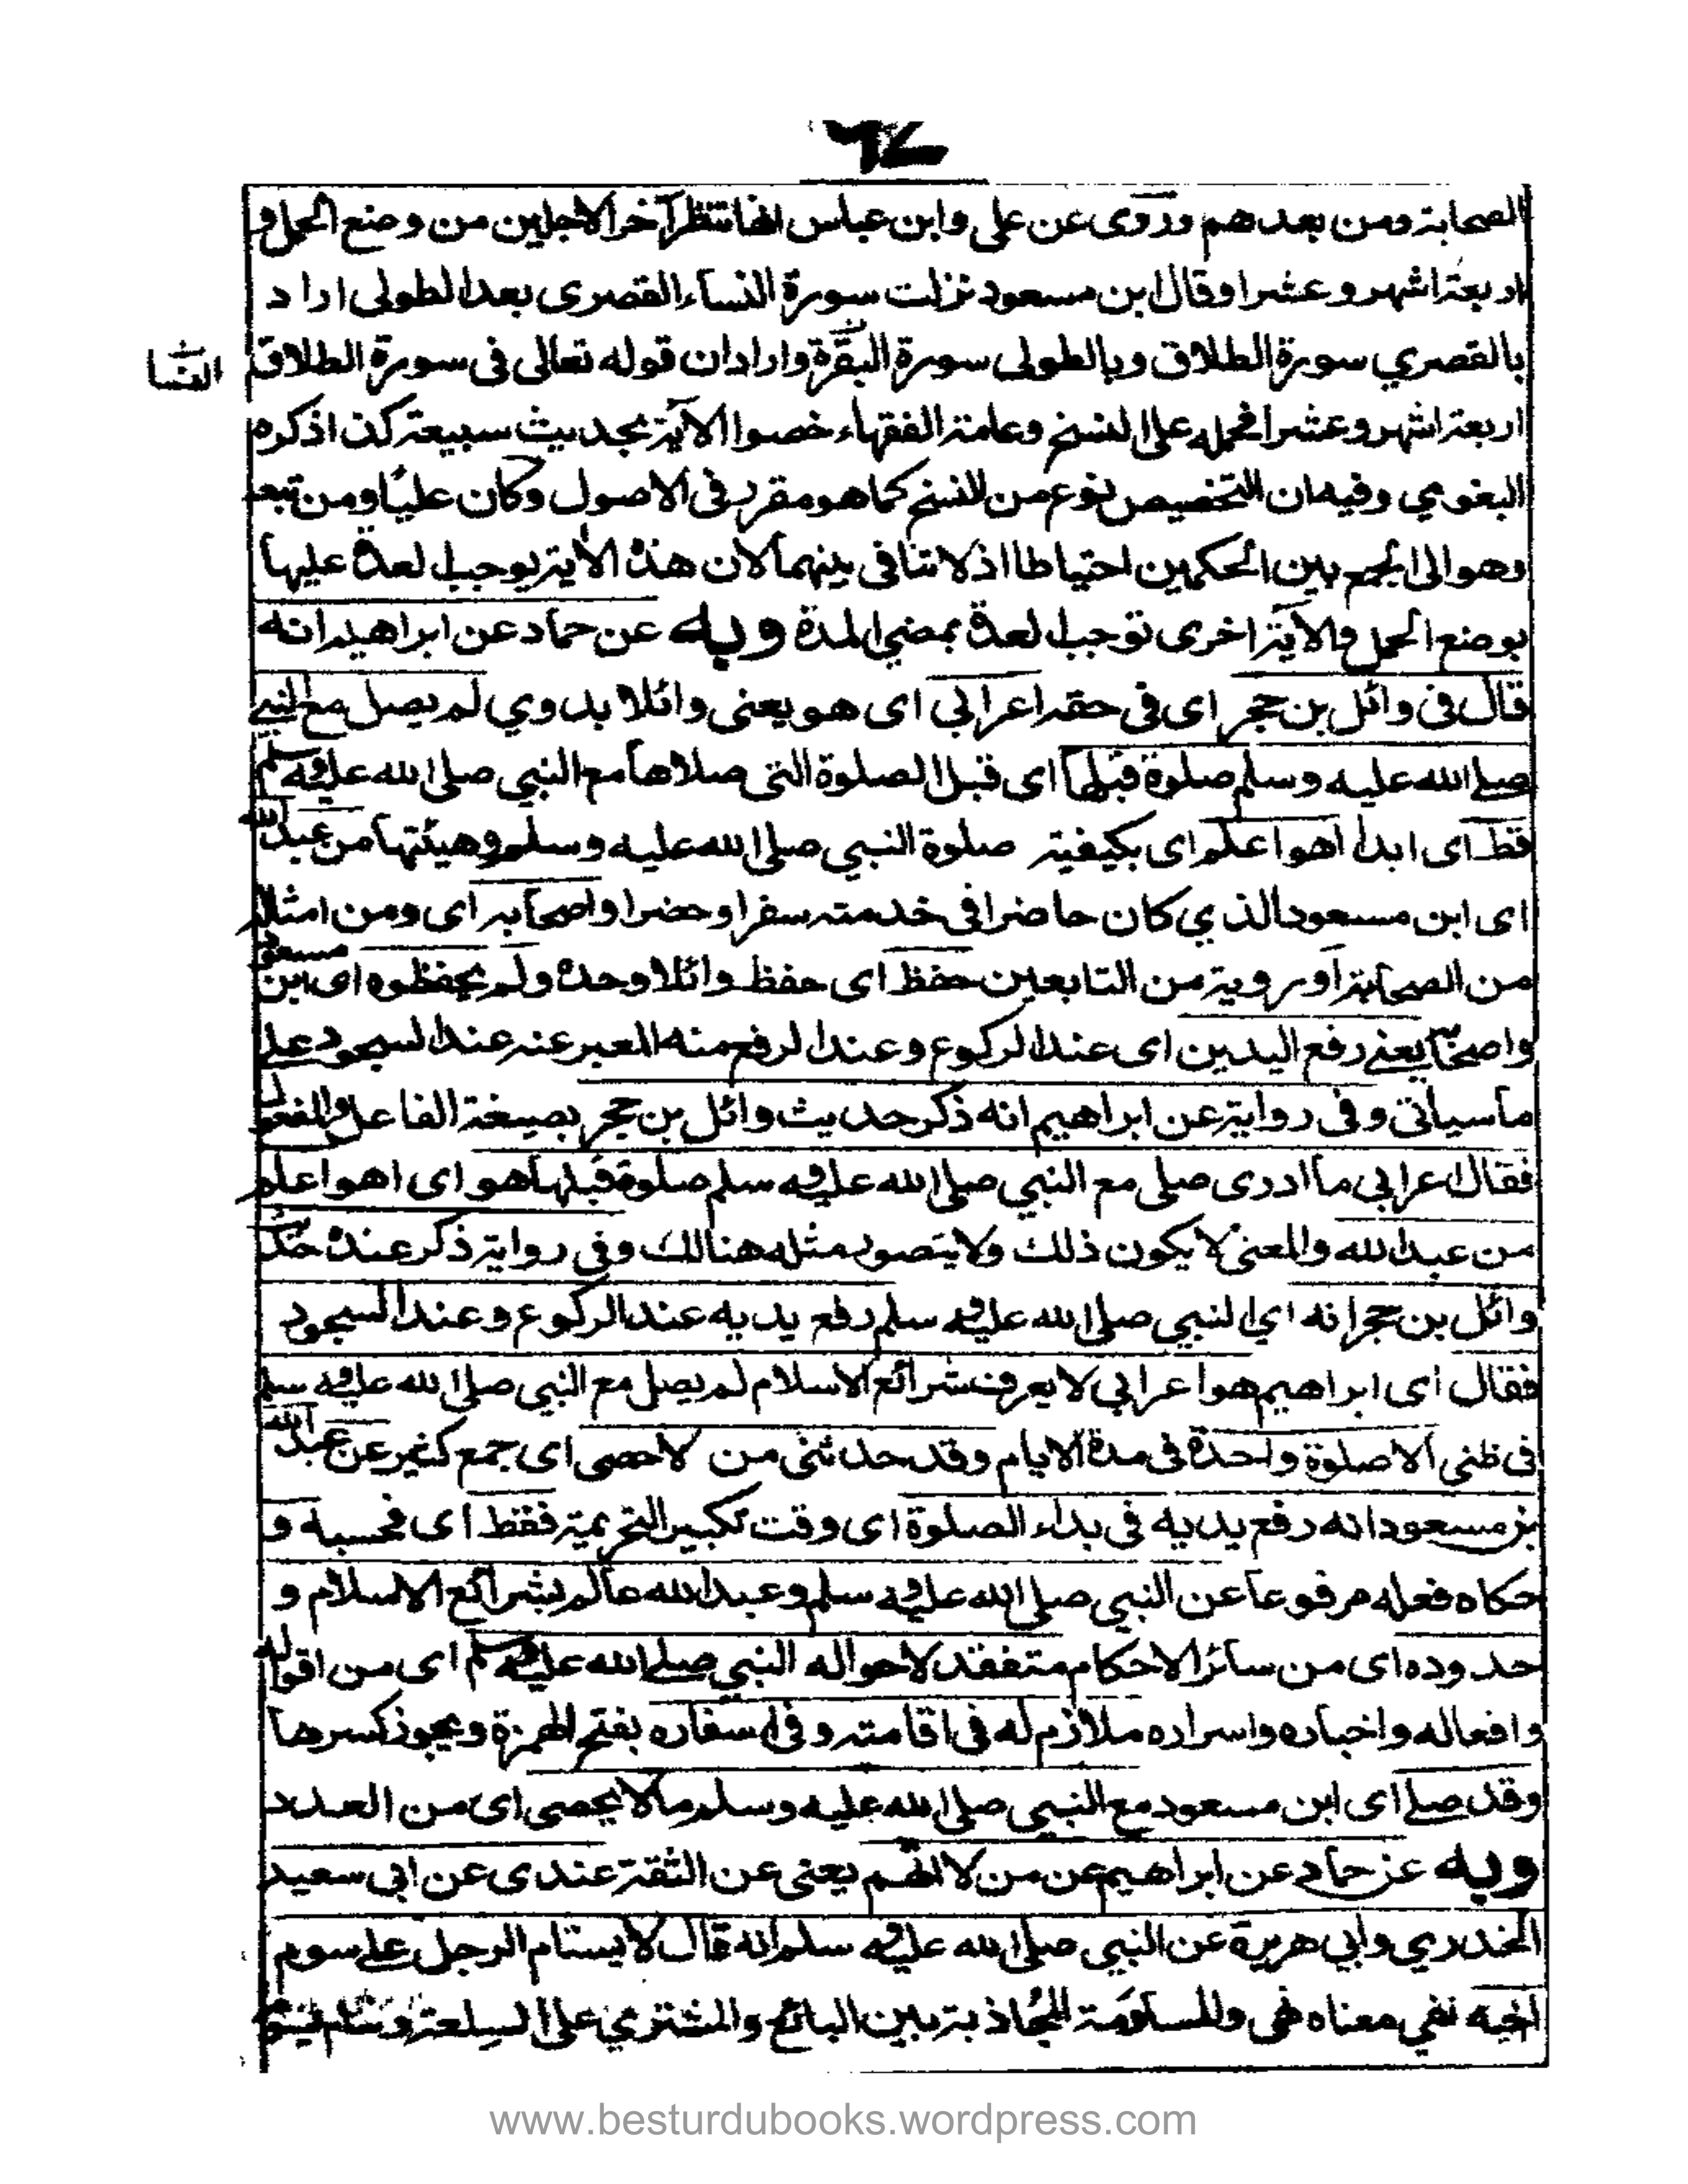 ٦٧
الصحابة ومن بعدهم وروى عن علي وابن عباس انها تنتظر آخر الاجلين من وضع الحمل و
اربعة اشهر وعشرا وقال ابن مسعود نزلت سورة النساء القصرى بعد الطولى اراد
بالقصري سورة الطلاق وبالطولى سورة البقرة وارادان قوله تعالى فى سورة الطلاق
اربعة اشهر وعشرا فحمله على النسخ وعامة الفقهاء خصوا الآية بحديث سبيعة كذا ذكره
البغوي وفيه ان التخصيص نوع من النسخ كما هو مقرر فى الاصول وكان عليًا ومن تبعه
وهوالى الجمع بين الحكمين احتياطا اذ لا تنافى بينهما لان هذه الآية توجب العدة عليها
بوضع الحمل والآية اخرى توجب العدة بمضي المدة وبه عن حماد عن ابراهيم انه
قال فى وائل بن حجر اى فى حقه اعرابي اى هو يعنى وائلا بدوي لم يصل مع النبي
صلى الله عليه وسلم صلوة قبلها اى قبل الصلوة التى صلاها مع النبي صلى الله عليه وسلم
قط اى ابدا أهو اعلم اى بكيفية صلوة النبي صلى الله عليه وسلم وهيئتها من عبد الله
اى ابن مسعود الذي كان حاضرا فى خدمته سفرا وحضرا واصحابه اى ومن امثاله
من الصحابة او روية من التابعين حفظ اى حفظ وائلا وحده ولم يحفظوه اى ابن مسعود
واصحابه يعنى رفع اليدين اى عند الركوع وعند الرفع منه المعبر عنه عند السجود على
ما سياتى وفى رواية عن ابراهيم انه ذكر حديث وائل بن حجر بصيغة الفاعل والمفعول
فقال اعرابي ما ادرى صلى مع النبي صلى الله عليه وسلم صلوة قبلها هو اى اهو اعلم
من عبد الله والمعنى لا يكون ذلك ولا يتصور مثله هنالك وفى رواية ذكر عنده حديث
وائل بن حجر انه اى النبي صلى الله عليه وسلم رفع يديه عند الركوع وعند السجود
فقال اى ابراهيم هو اعرابي لا يعرف شرائع الاسلام لم يصل مع النبي صلى الله عليه وسلم
فى ظنى الا صلوة واحدة فى مدة الايام وقد حدثنى من لا احصى اى جمع كثير عن عبد الله
بن مسعود انه رفع يديه فى بداء الصلوة اى وقت تكبير التحريمة فقط اى فحسبه و
حكاه فعله مرفوعا عن النبي صلى الله عليه وسلم وعبد الله عالم بشرائع الاسلام و
حدوده اى من سائر الاحكام متفقد لاحواله النبي صلى الله عليه وسلم اى من اقواله
وافعاله واخباره واسراره ملازم له فى اقامته وفى اسفاره بفتح الهمزة ويجوز كسرها
وقد صلى اى ابن مسعود مع النبي صلى الله عليه وسلم ما لا يحصى اى من العدد
وبه عن حماد عن ابراهيم عن من لا اتهم يعنى عن الثقة عندى عن ابى سعيد
الخدري وابي هريرة عن النبي صلى الله عليه وسلم انه قال لا يستام الرجل على سوم
اخيه نفي معناه نهى والمساومة المجاذبة بين البائع والمشتري على السلعة
www.besturdubooks.wordpress.com